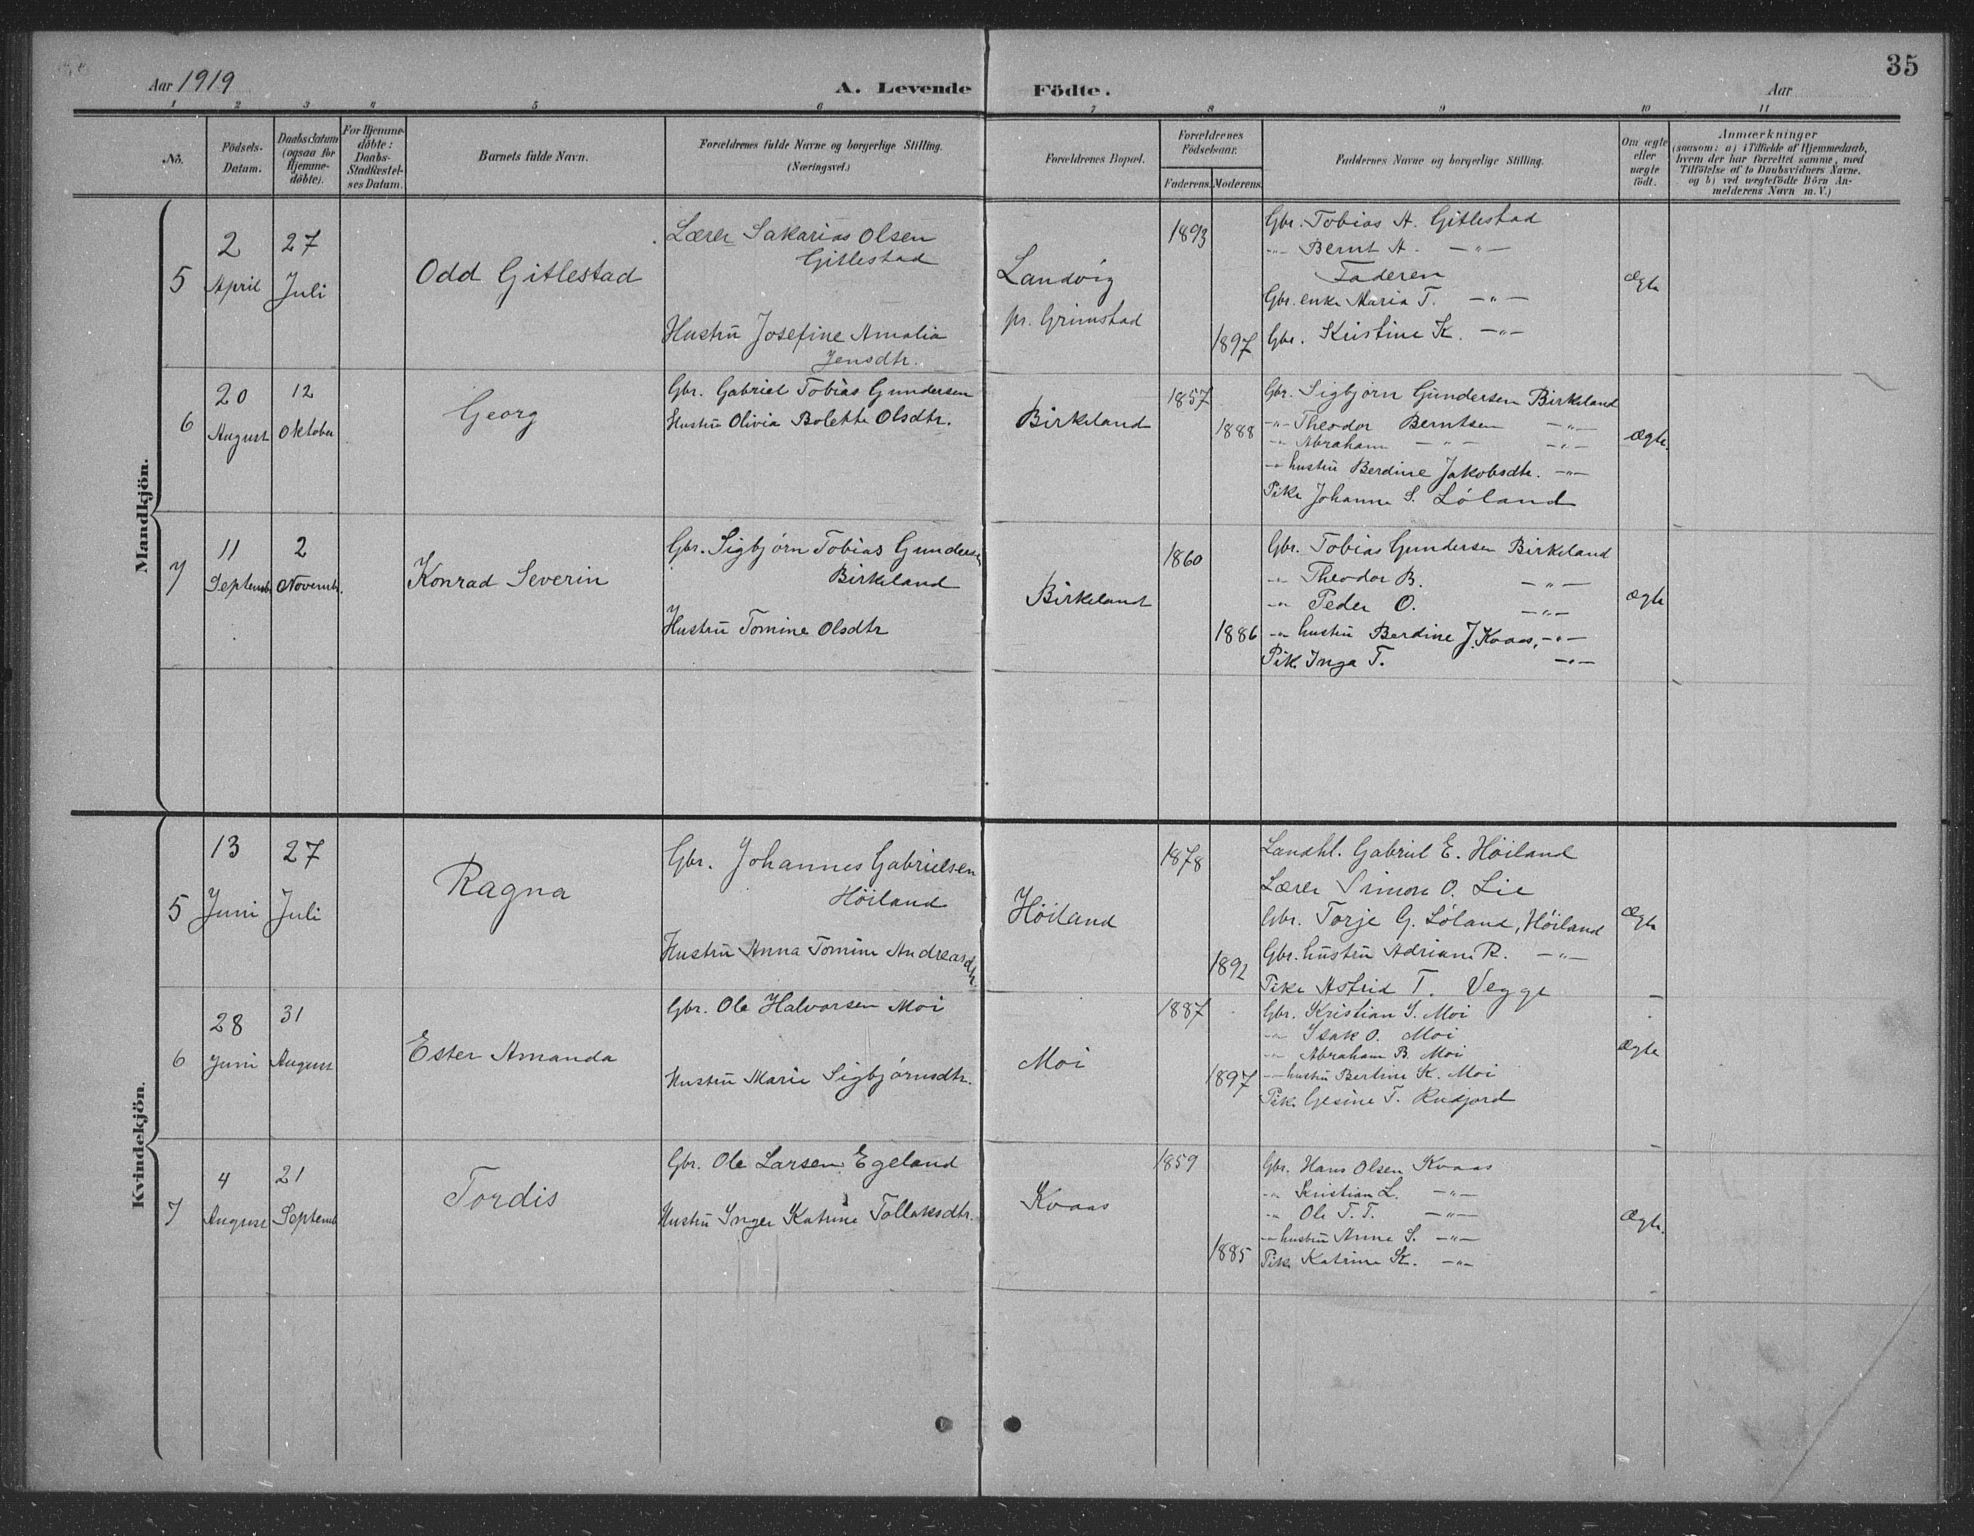 35
Aar 1919
A. Levende Födte.
Aar
1 2 3 4 5 6 7 8 9 10 11
No.
Födsels-
Datum.
Daabsdatum
(ogsaa for
Hjemme-
döbte).
For Hjemme-
döbte:
Daabs-
Stadfæstel-
ses Datum.
Barnets fulde Navn.
Forældrenes fulde Navne og borgerlige Stilling.
(Næringsvei.)
Forældrenes Bopæl.
Forældrenes
Födselsaar.
Faderens. Moderens.
Faddernes Navne og borgerlige Stilling.
Om ægte
eller
uægte
födt.
Anmærkninger
(saasom: a) i Tilfælde af Hjemmedaab,
hvem der har forrettet samme, med
Tilföielse af to Daabsvidners Navne,
og b) ved uægtefödte Börn An-
melderens Navn m. V.)
Mandkjön.
5
2
April
27
Juli
Odd Gitlestad
Lærer Sakarias Olsen
Gitlestad
Hustru Josefine Amalia
Jensdtr.
Landvig
pr. Grimstad
1893
1897
Gbr. Tobias A. Gitlestad
-"- Bernt A. -"-
Faderen
Gbr. enke Maria T. -"-
Gbr. Kristine K. -"-
Ægte
6
20
August
12
Oktober
Georg
Gbr. Gabriel Tobias Gundersen
Hustru Olivia Bolette Olsdtr.
Birkeland
1857
1888
Gbr. Sigbjørn Gundersen Birkeland
-"- Theodor Berntsen -"-
-"- Abraham -"- -"-
-"- hustru Berdine Jakobsdtr. -"-
Pike Johanne S. Løland
Ægte.
7
11
Septemb.
2
Novemb.
Konrad Severin
Gbr. Sigbjørn Tobias Gundersen
Birkeland
Hustru Tomine Olsdtr
Birkeland
1860
1886
Gbr. Tobias Gundersen Birkeland
-"- Theodor B. -"-
-"- Peder O. -"-
-"- hustru Berdine J. Kvaas, -"-
Pik. Inga T. -"-
Ægte
Kvindekjön.
5
13
Juni
27
Juli
Ragna
Gbr. Johannes Gabrielsen
Höiland
Hustru Anna Tomine Andreasdtr.
Höiland
1878
1892
Landhl. Gabriel E. Höiland
Lærer Simon O. Lie
Gbr. Torje G. Løland, Höiland
Gbr. hustru Adriane R. -"-
Pike Astrid T. Vegge
Ægte
6
28
Juni
31
August
Ester Amanda
Gbr. Ole Halvorsen Moi
Hustru Marie Sigbjørnsdtr.
Moi
1887
1897
Gbr. Kristian S. Moi
-"- Isak O. Moi
-"- Abraham B. Moi
-"- hustru Bertine K. Moi
Pik. Gesine T. Rudjord
Ægte
7
4
August
21
Septemb
Tordis
Gbr. Ole Larsen Egeland
Hustru Inger Katrine Tollaksdtr.
Kvaas
1859
1885
Gbr. Hans Olsen Kvaas
-"- Kristian L. -"-
-"- Ole T. T. -"-
-"- hustru Anne S. -"-
Pik. Katrine K. -"-
Ægte.